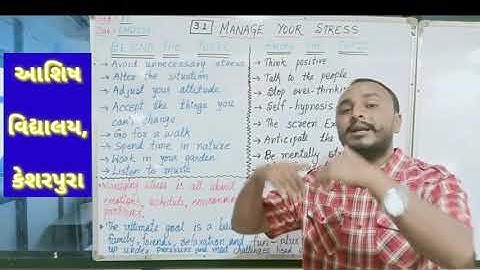 3.1 MANAGE YOUR STRESS
આશિષ
વિદ્યાલય,
કેશરપુરા
Avoid unnecessary stress
Alter the situation
Adjust your attitude
Accept the things you
can't change
Go for a walk
Spend time in nature
Work in your garden
Listen to music
Think positive
Talk to the people
Stop over-think
Self-hypnosis
The screen Ex
Anticipate the
Be mentally
Managing stress is all about
emotions, schedule, environment
problems.
The ultimate goal is a
family, friends, relaxation and fun - plus
up under pressure and meet challenges head